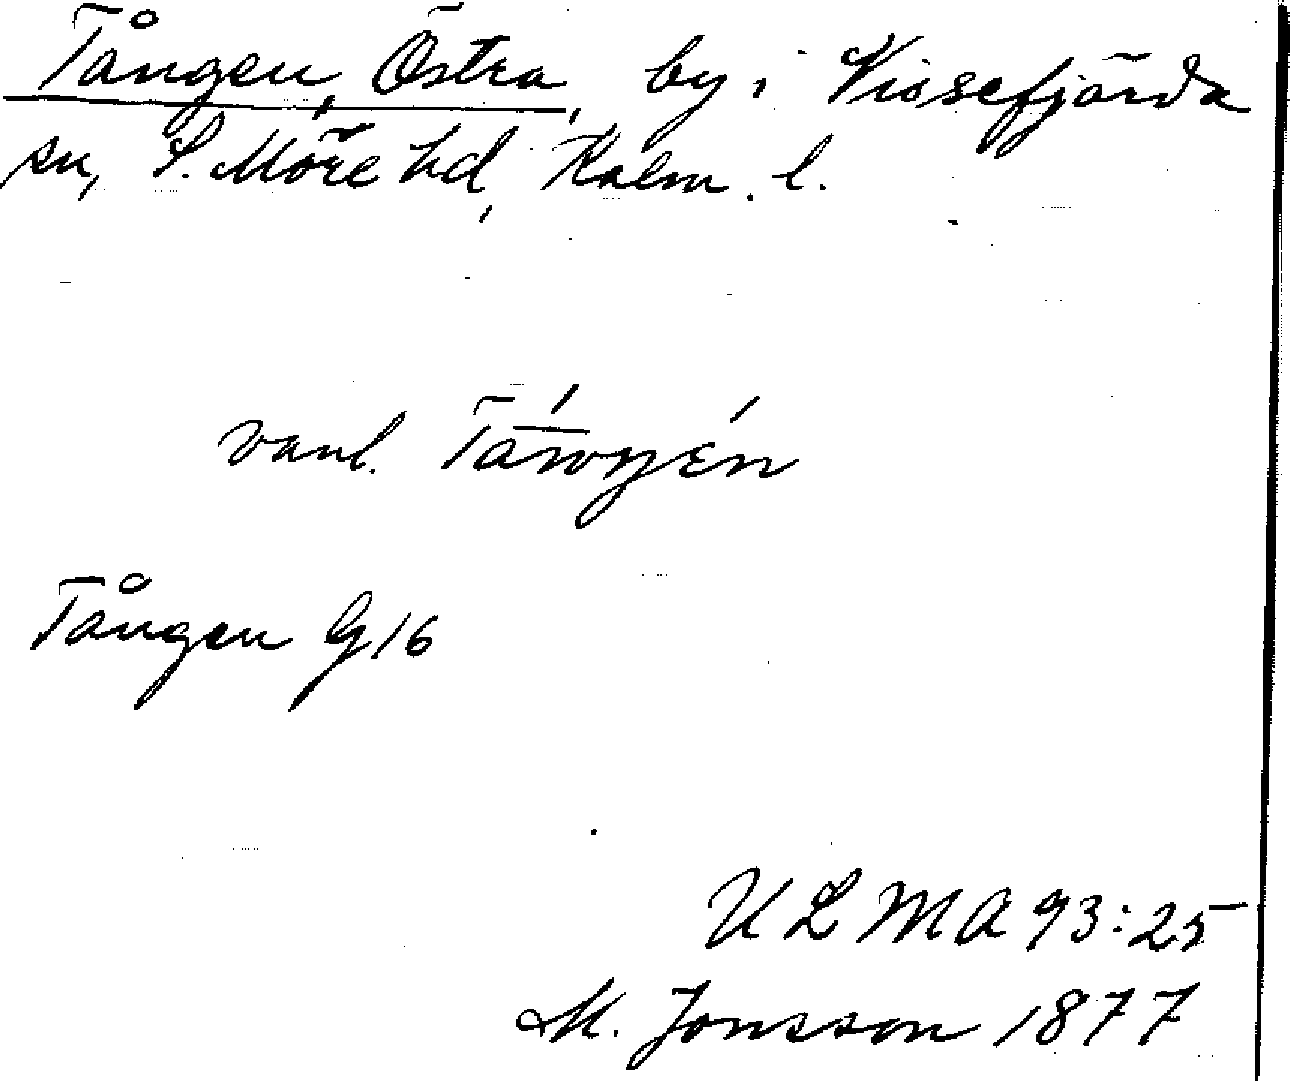 Tången, Östra, by i Vissefjärda
sn, S. Möre hd, Kalm. l.
vanl.
Tången G16
ULMA 93:25
M. Jonsson 1877